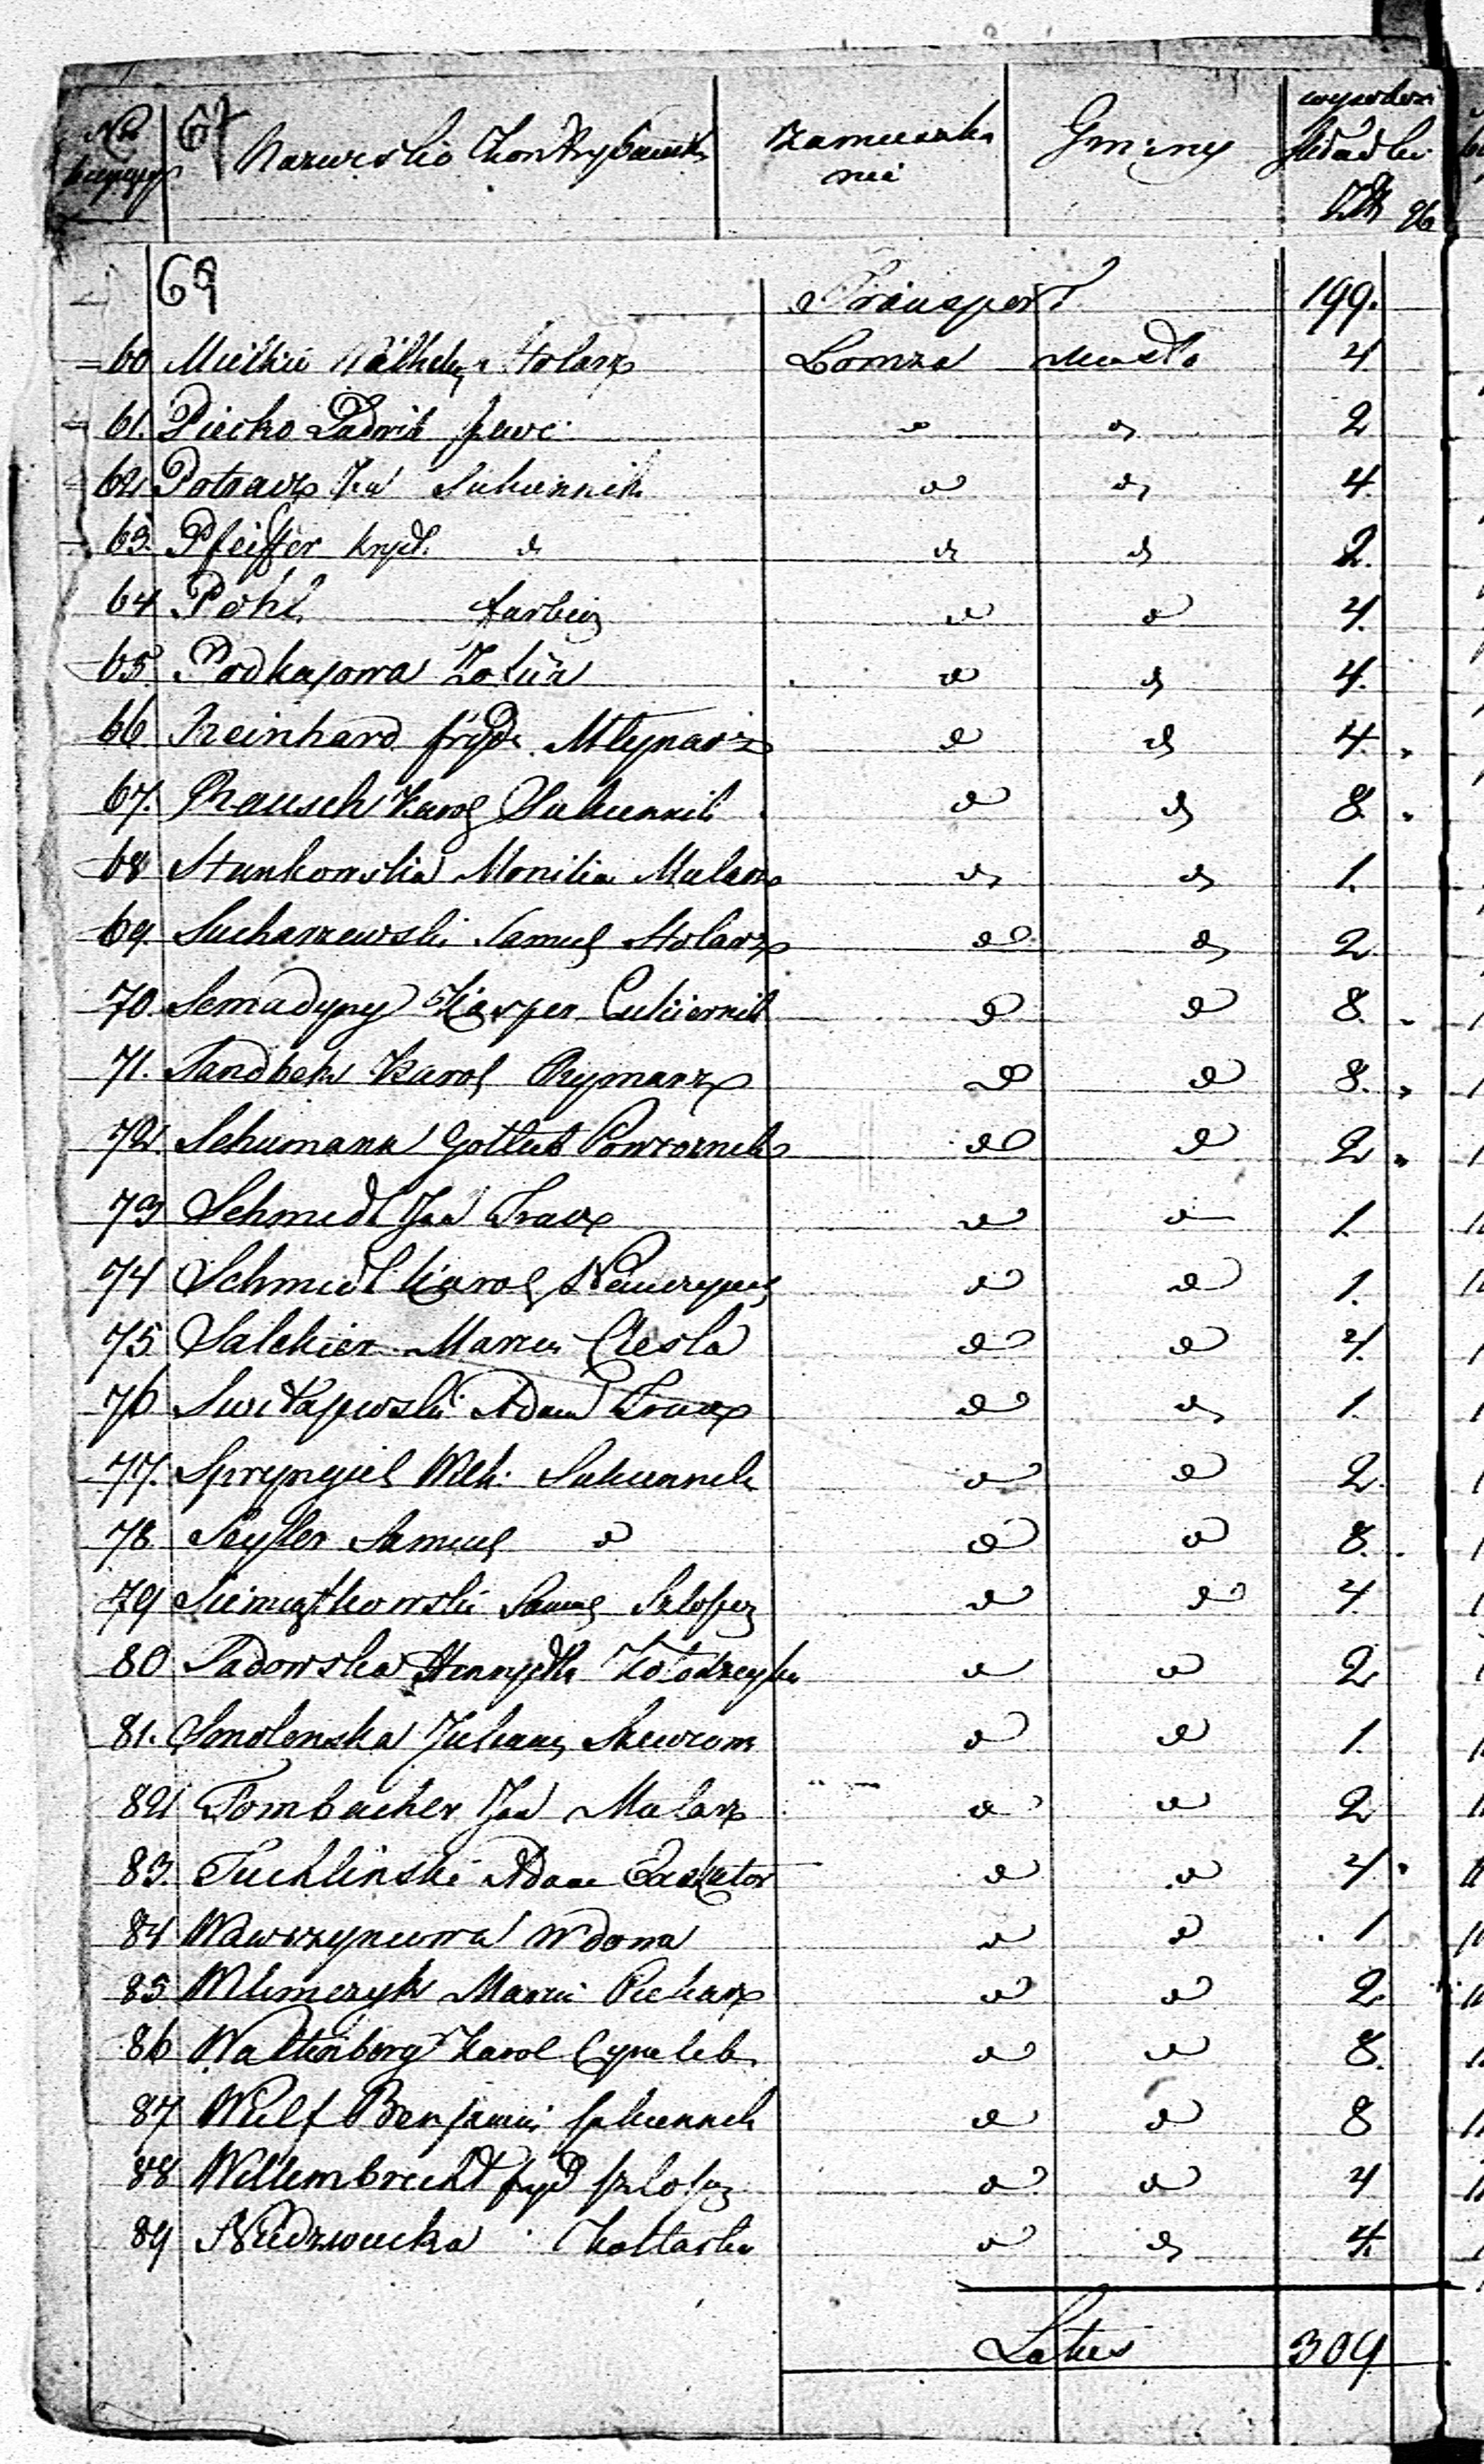 Nro 67 Nazwisko Kontrybuenta Zamieszka Gminy wychodzi
bieżący nie składki
Złt gr
69 Transport 199.
60 Mielkie Wilhelm Stolarz Łomza Miasto 4
61. Piecko Ludwik szewc do do 2
62 Potrawz Jan Sukiennik do do 4
63. Pfeiffer Kryst. do do do 2.
64 Pohl farbierz do do 4.
65. Podkajowa Zofiia do do 4.
66 Reinhard fryd. Młynarz do do 4.
67. Rausch Karol Sukiennik do do 8.
68 Stankowska Monika Mularz do do 1.
69. Sucharzewski Samuel Stolarz do do 2
70. Semadyny Kasper Cukiernik do do 8.
71. Sandbek Karol Rymarz do do 8.
72. Schumann Gotlieb Powroznik do do 2
73 Schmidt Jan Tracz do do 1.
74 Schmidt Karol do do 1.
75 Salekier Marcin Ciesla do do 4.
76 Adam Tracz do do 1.
77. Spryngiel Wilh: Sukiennik do do 2
78 Seyller Samuel do do do 8.
79 Siemiątkowski Samuel Szlosez do do 4.
80 Sadowska Henryetta Kołodzieyka do do 2
81. Smolenska Juliana Szewcowa do do 1.
82 Tombacher Jan Mularz do do 2
83. Tuchlinski Adam Exekutor do do 4
84 Wawrzyncowa Wdowa do do 1
85 Klimczyk Marcin Piekarz do do 2
86 Waltenberg Karol Cyrulik do do 8.
87 Wulf Benjamin sukiennik do do 8
88 Willembrecht fryd szlosez do do 4
89 Niedzwiecka Kotlarka do do 4.
Latus 309